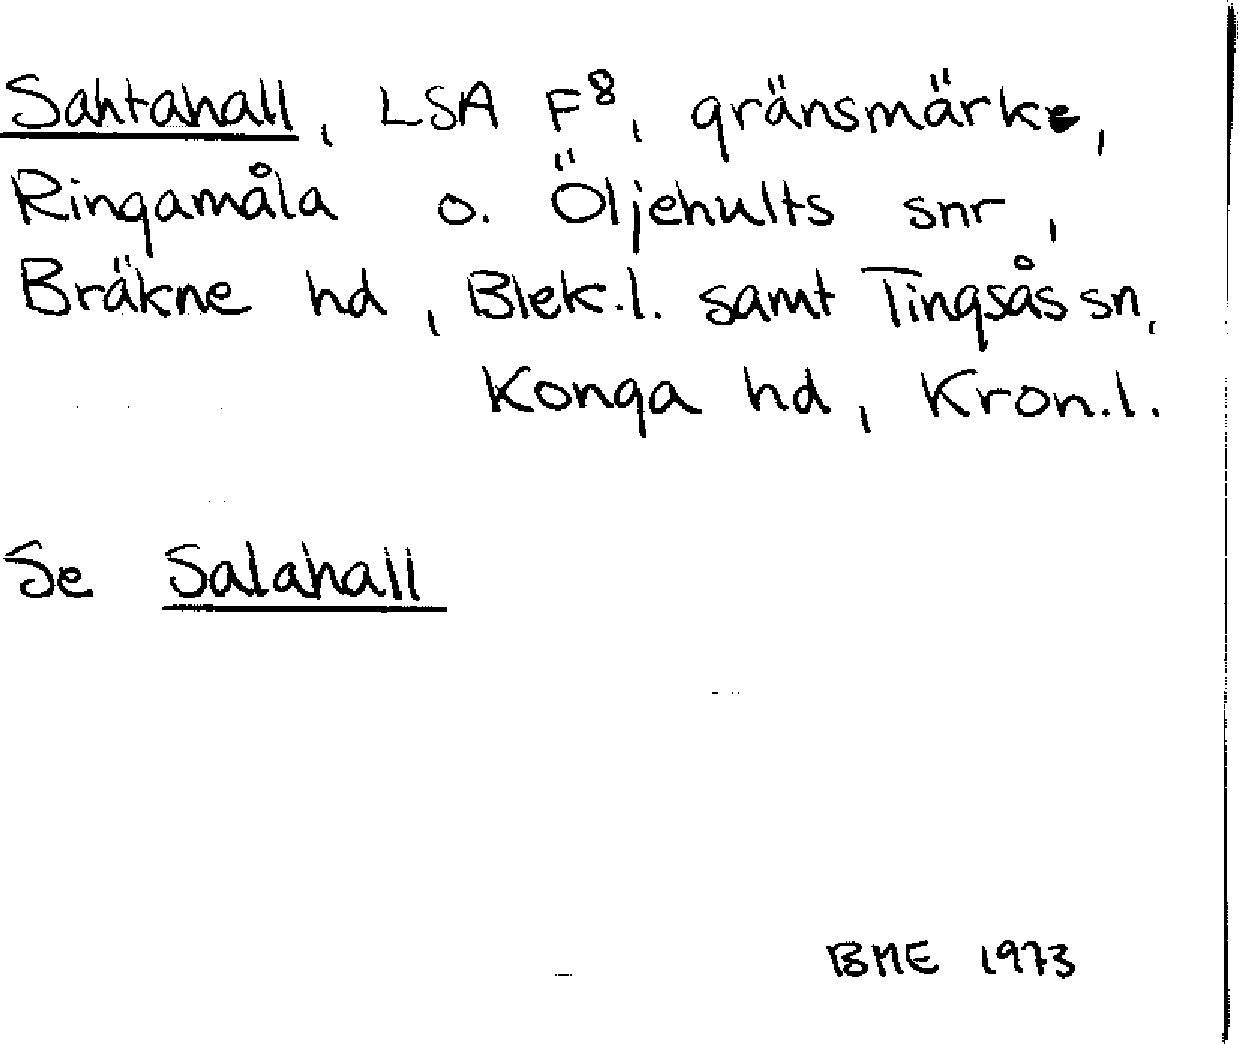 Sahtahall, LSA F⁸, gränsmärke,
Ringamåla o. Öljehults snr,
Bräkne hd, Blek.l. samt Tingsås sn,
Konga hd, Kron.l.
Se Salahall
BME 1973